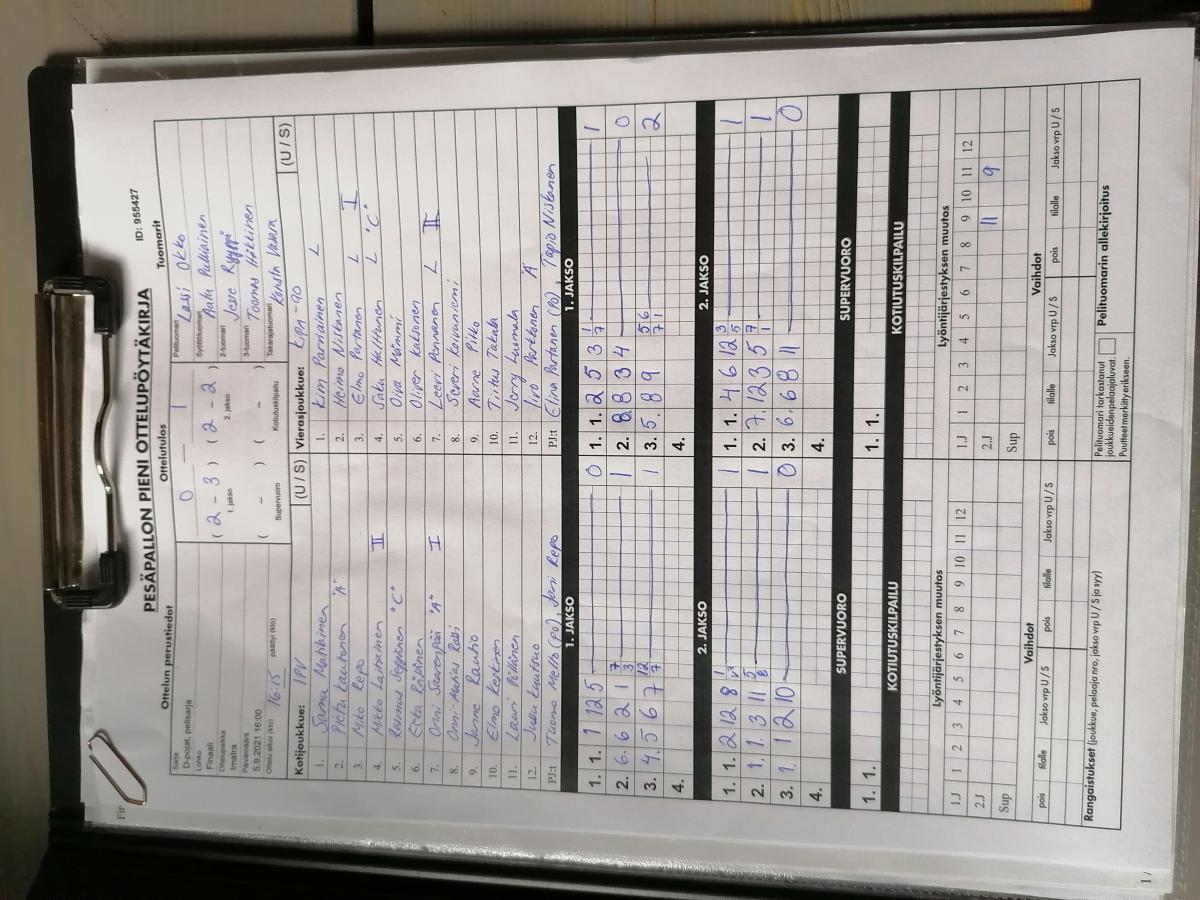 PESÄPALLON PIENI OTTELUPÖYTÄKIRJA
ID: 955427
Ottelun perustiedot
Sarja
D-pojat, pelisarja
Lohko
Finaali
Ottelupaikka
Imatra
Päivämäärä
5.9.2021 16:00
Ottelu alkoi (klo) 16:15 päättyi (klo)
Ottelutulos
0 — 1
( 2 - 3 ) ( 2 - 2 )
1. jakso 2. jakso
( - ) ( - )
Supervuoro Kotiutuskilpailu
Tuomarit
Pelituomari Lassi Okko
Syöttötuomari Aatu
2-tuomari Jesse Ryyppö
3-tuomari Toomas Häkkinen
Takarajatuomari Konsta Vasara
Kotijoukkue: IPV (U / S)
1. Samu Matikainen
2. Pietu Kauhanen "A"
3. Miko Repo
4. Mikko Lattunen II
5. Rasmus Seppänen "C"
6. Eetu Räihänen
7. Onni Saarenpää "A" I
8. Onni-Matias Rossi
9. Jonne Rautio
10. Elmo Ketonen
11. Lauri Pöllänen
12. Juho Kauhanen
PJ:t Tuomo Mella (po), Jani Repo
Vierasjoukkue: KPK-90 (U / S)
1. Kim Parviainen L
2. Heimo Nikkanen
3. Elmo Partanen L I
4. Saku Halttunen L "C"
5. Oiva Mämmi
6. Oliver Kakkonen
7. Leevi Ponnonen L II
8. Severi Koivuniemi
9. Aarne Pitko
10. Tiitus Takala
11. Jerry Luumala
12. Iivo Parkkonen Ä
PJ:t Elina Partanen (PO), Tapio Niskanen
1. JAKSO
1. 1. 1 12 5 0
2. 6. 6 2 1 7 3 1
3. 4. 5 6 7 12 7 1
4.
1. JAKSO
1. 1. 2 5 3 1 7 1
2. 8. 8 3 4 0
3. 5. 8 9 5 6 7 1 2
4.
2. JAKSO
1. 1. 2 12 8 1 1
2. 1. 1 3 11 5 8 1
3. 1. 1 2 10 0
4.
2. JAKSO
1. 1. 4 6 12 3 5 1
2. 7. 12 3 5 7 1 1
3. 6. 6 8 11 0
4.
SUPERVUORO
1. 1.
SUPERVUORO
1. 1.
KOTIUTUSKILPAILU
KOTIUTUSKILPAILU
Lyöntijärjestyksen muutos
1.J 1 2 3 4 5 6 7 8 9 10 11 12
2.J
Sup
Lyöntijärjestyksen muutos
1.J 1 2 3 4 5 6 7 8 9 10 11 12
2.J 11 9
Sup
Vaihdot
pois tilalle Jakso vrp U / S pois tilalle Jakso vrp U / S
Vaihdot
pois tilalle Jakso vrp U / S pois tilalle Jakso vrp U / S
Rangaistukset (joukkue, pelaaja nro, jakso vrp U / S ja syy)
Pelituomari tarkastanut
joukkueiden pelaajaluvat.
Puutteet merkitty erikseen.
Pelituomarin allekirjoitus
1 /